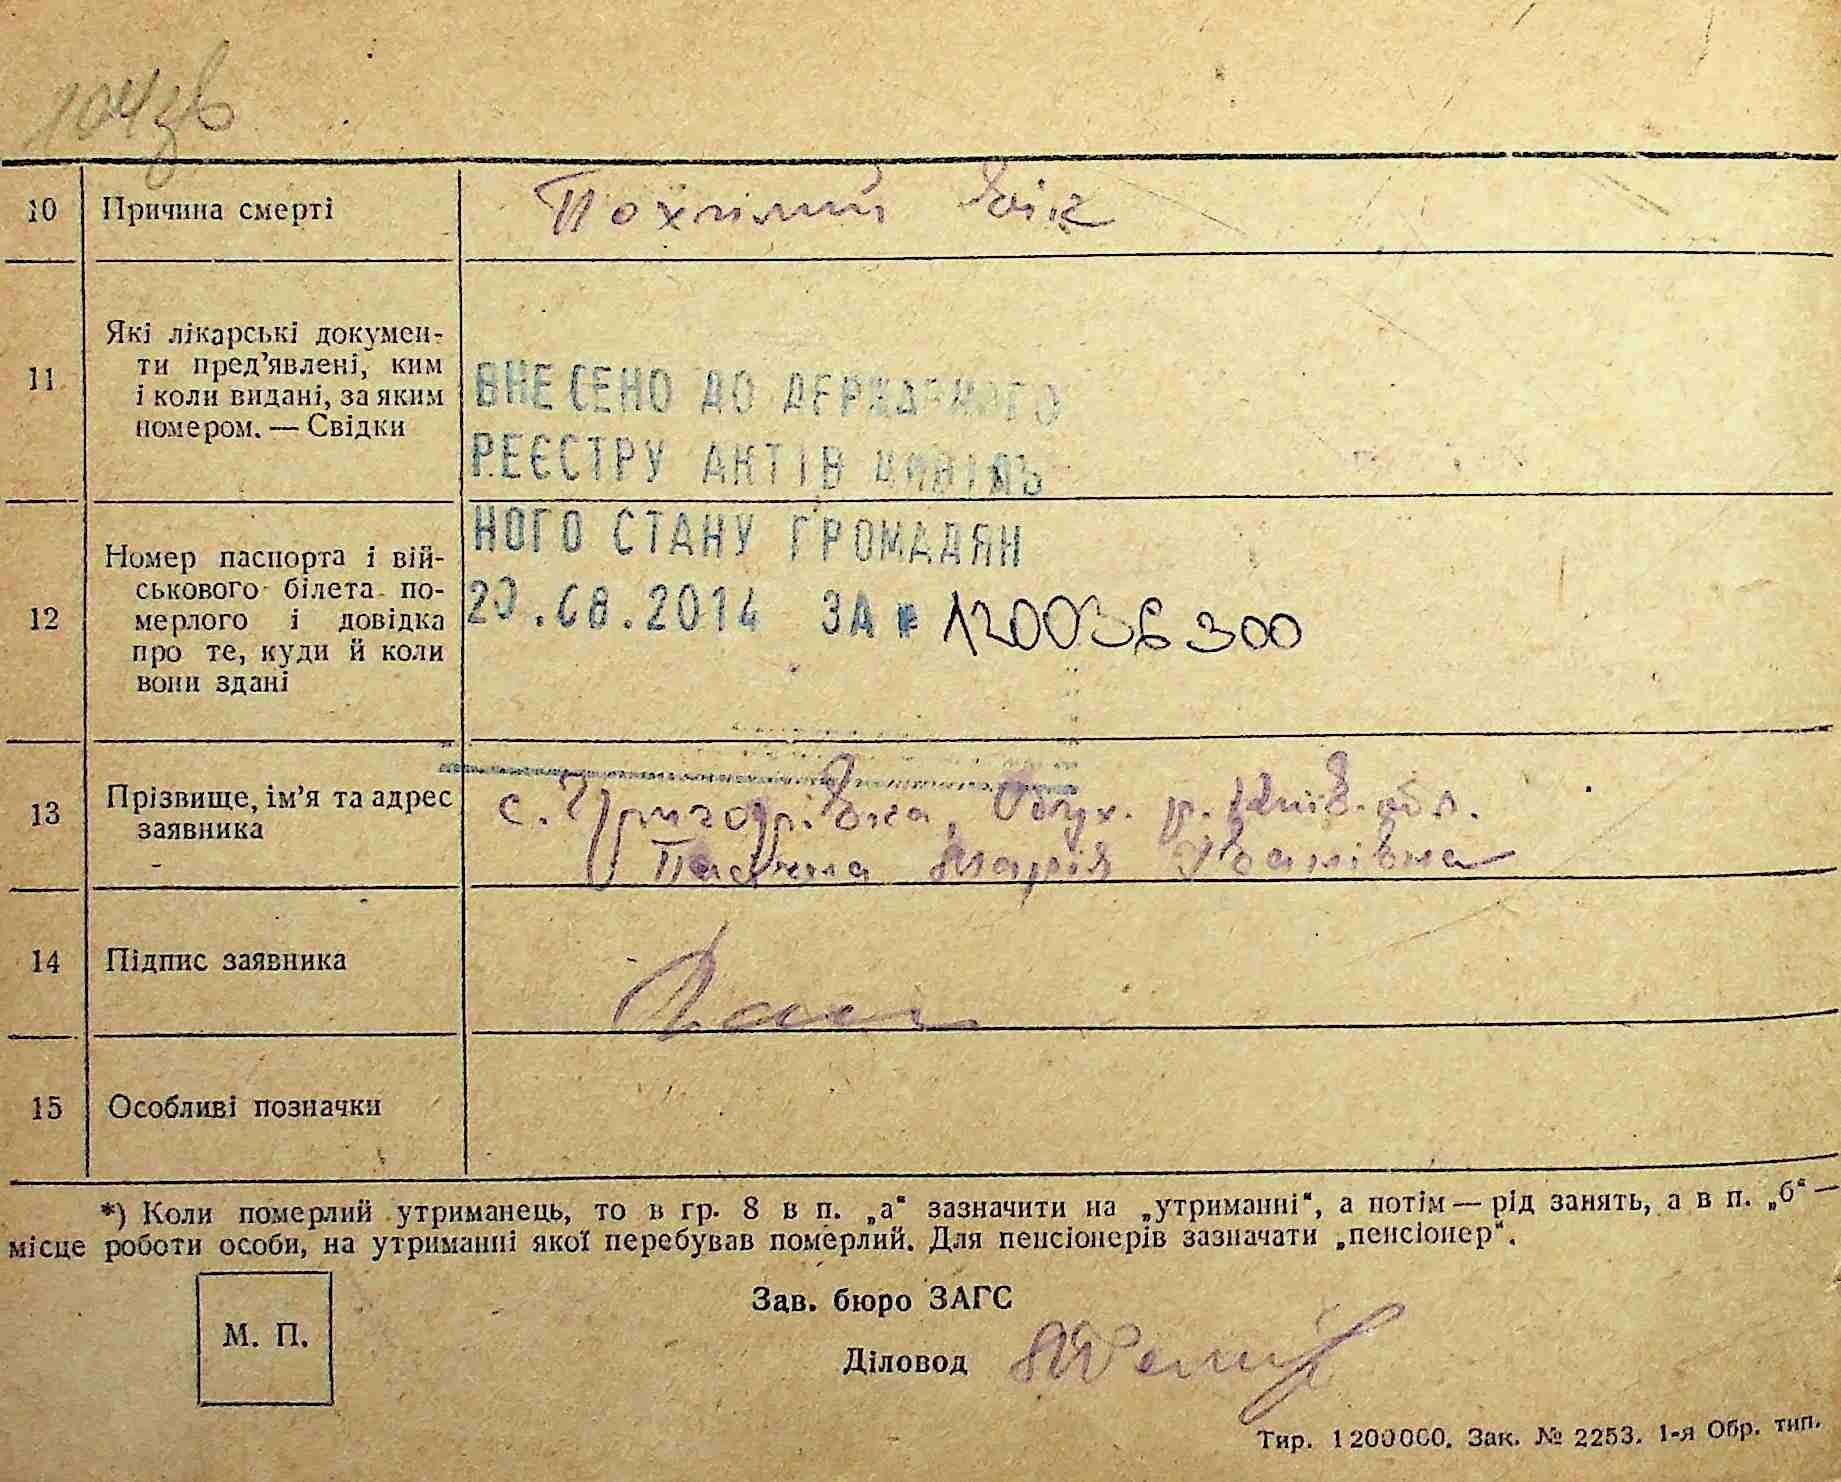 104зв
10 Причина смерті Похилий вік
11 Які лікарські докумен-
ти пред’явлені, ким
і коли видані, за яким
номером. — Свідки
ВНЕСЕНО ДО ДЕРЖАВНОГО
РЕЄСТРУ АКТІВ ЦИВІЛЬ
НОГО СТАНУ ГРОМАДЯН
20.08.2014 ЗА № 120036300
12 Номер паспорта і вій-
ськового білета по-
мерлого і довідка
про те, куди й коли
вони здані
13 Прізвище, ім’я та адрес
заявника
с. Григорівка, Обух. р. Київ. обл.
Марія Іванівна
14 Підпис заявника
15 Особливі позначки
*) Коли померлий утриманець, то в гр. 8 в п. „а“ зазначити на „утриманні“, а потім — рід занять, а в п. „б“ —
місце роботи особи, на утриманні якої перебував померлий. Для пенсіонерів зазначати „пенсіонер“.
Зав. бюро ЗАГС
М. П.
Діловод
Тир. 1200000. Зак. № 2253. 1-я Обр. тип.